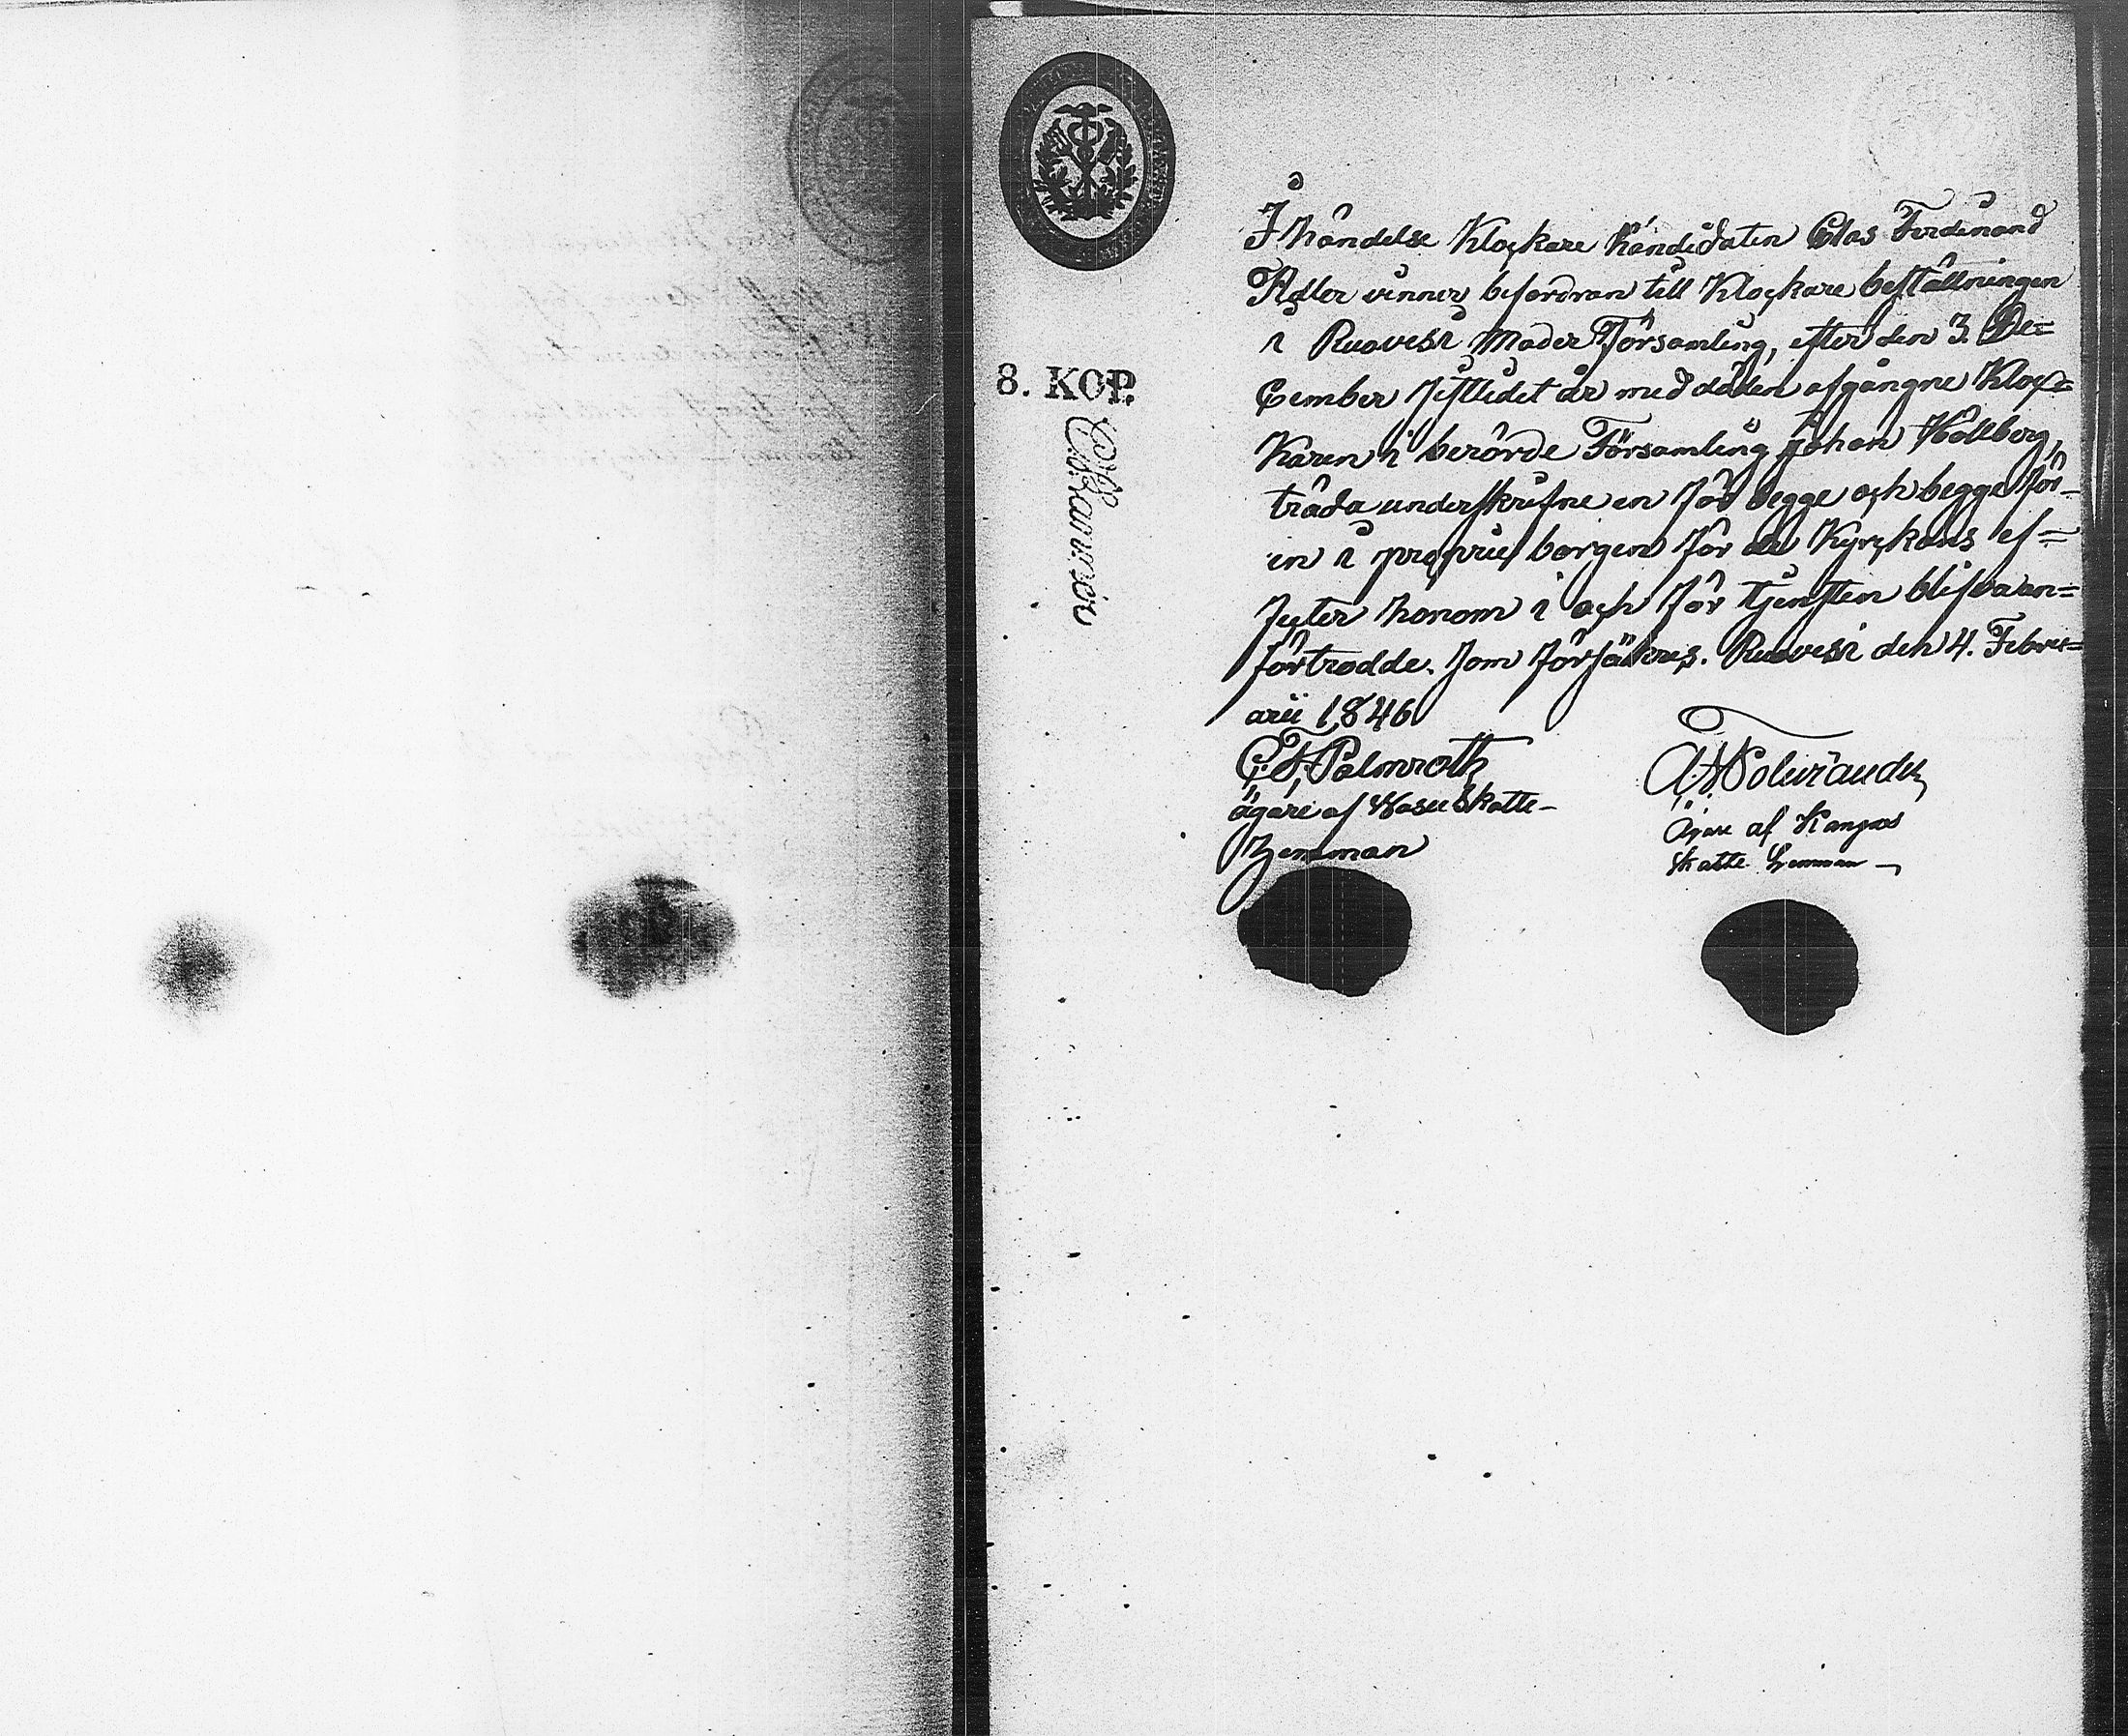 8. KOP.
I håndelse Klockare Kandidaten Clas Ferdinand
Adler vinner befordran till Klockare beställningen
i Ruovesi Moder Församling, efter den 3. De=
Cember sistledet år med döden afgångne Kloc=
Karen i berörde Församling Johan Hållberg,
träda underskrifne en för begge och begge för
en i proprie borgen för de Kyrckans ef=
fecter honom i och för tjensten blifva an=
förtrodde. Som försäkras. Ruovesi den 4. Febru=
arii 1846
C. F. Palmroth
ägare af Skatte-
Hemman
Ägare af Kangas
Skatte hemman